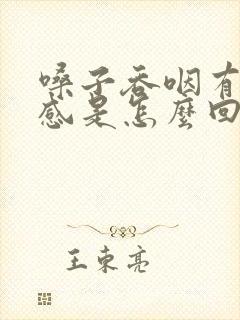 嗓子吞咽有
感是怎麼回
王東亮